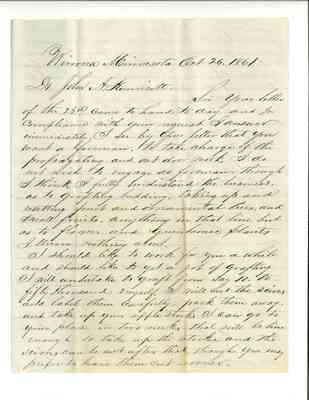 Winona Minnesota Oct 26, 1861.
Dr John A. Kennicott.
Sir Your letter
of the 23rd came to hand to day and to
compliance with your request I answer
immediately. I see by your letter that you
want a foreman, to take charge of the
propagating and out door work I do
not wish to engage as foreman though
I think I fully understand the business,
as to grafting, budding, taking up and
fruit and ornamental trees, and
small fruits, anything in that line but
as to flower and Greenhouse plants
I know nothing about.
I should like to work for you a while
and should like to get a job of grafting
I will undertake to graft from say 40 to
fifty thousand, I will cut the scions
and label them carefully, pack them away,
and take up your apple stocks. I can go to
your place in two weeks, that will be time
enough to take up the stocks and the
scions can be cut after that though you may
prefer to have them cut sooner.